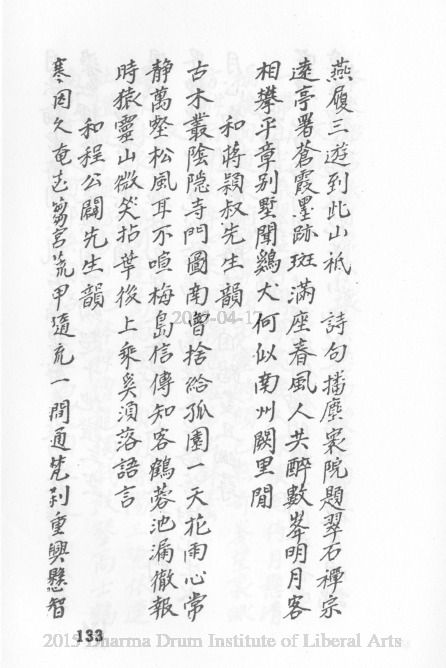 燕履三遊到此山祇　詩句播塵寰院題翠石禪宗
遠亭署蒼霞墨跡斑滿座春風人共醉數峯明月客
相攀平章別墅聞鷄犬何似南州闕里間
和蔣穎叔先生韻
古木叢陰隱寺門圖南曾捨給孤園一天花雨心常
靜萬壑松風耳不喧梅島信傳知客鶴蓉池漏徹報
時猿靈山微笑拈華後上乘奚須落語言
和程公闢先生韻
寒因久奄志蒭宮荒甲隨充一閒通梵刹重興懸智
133
2013 Dharma Drum Institute of Liberal Arts